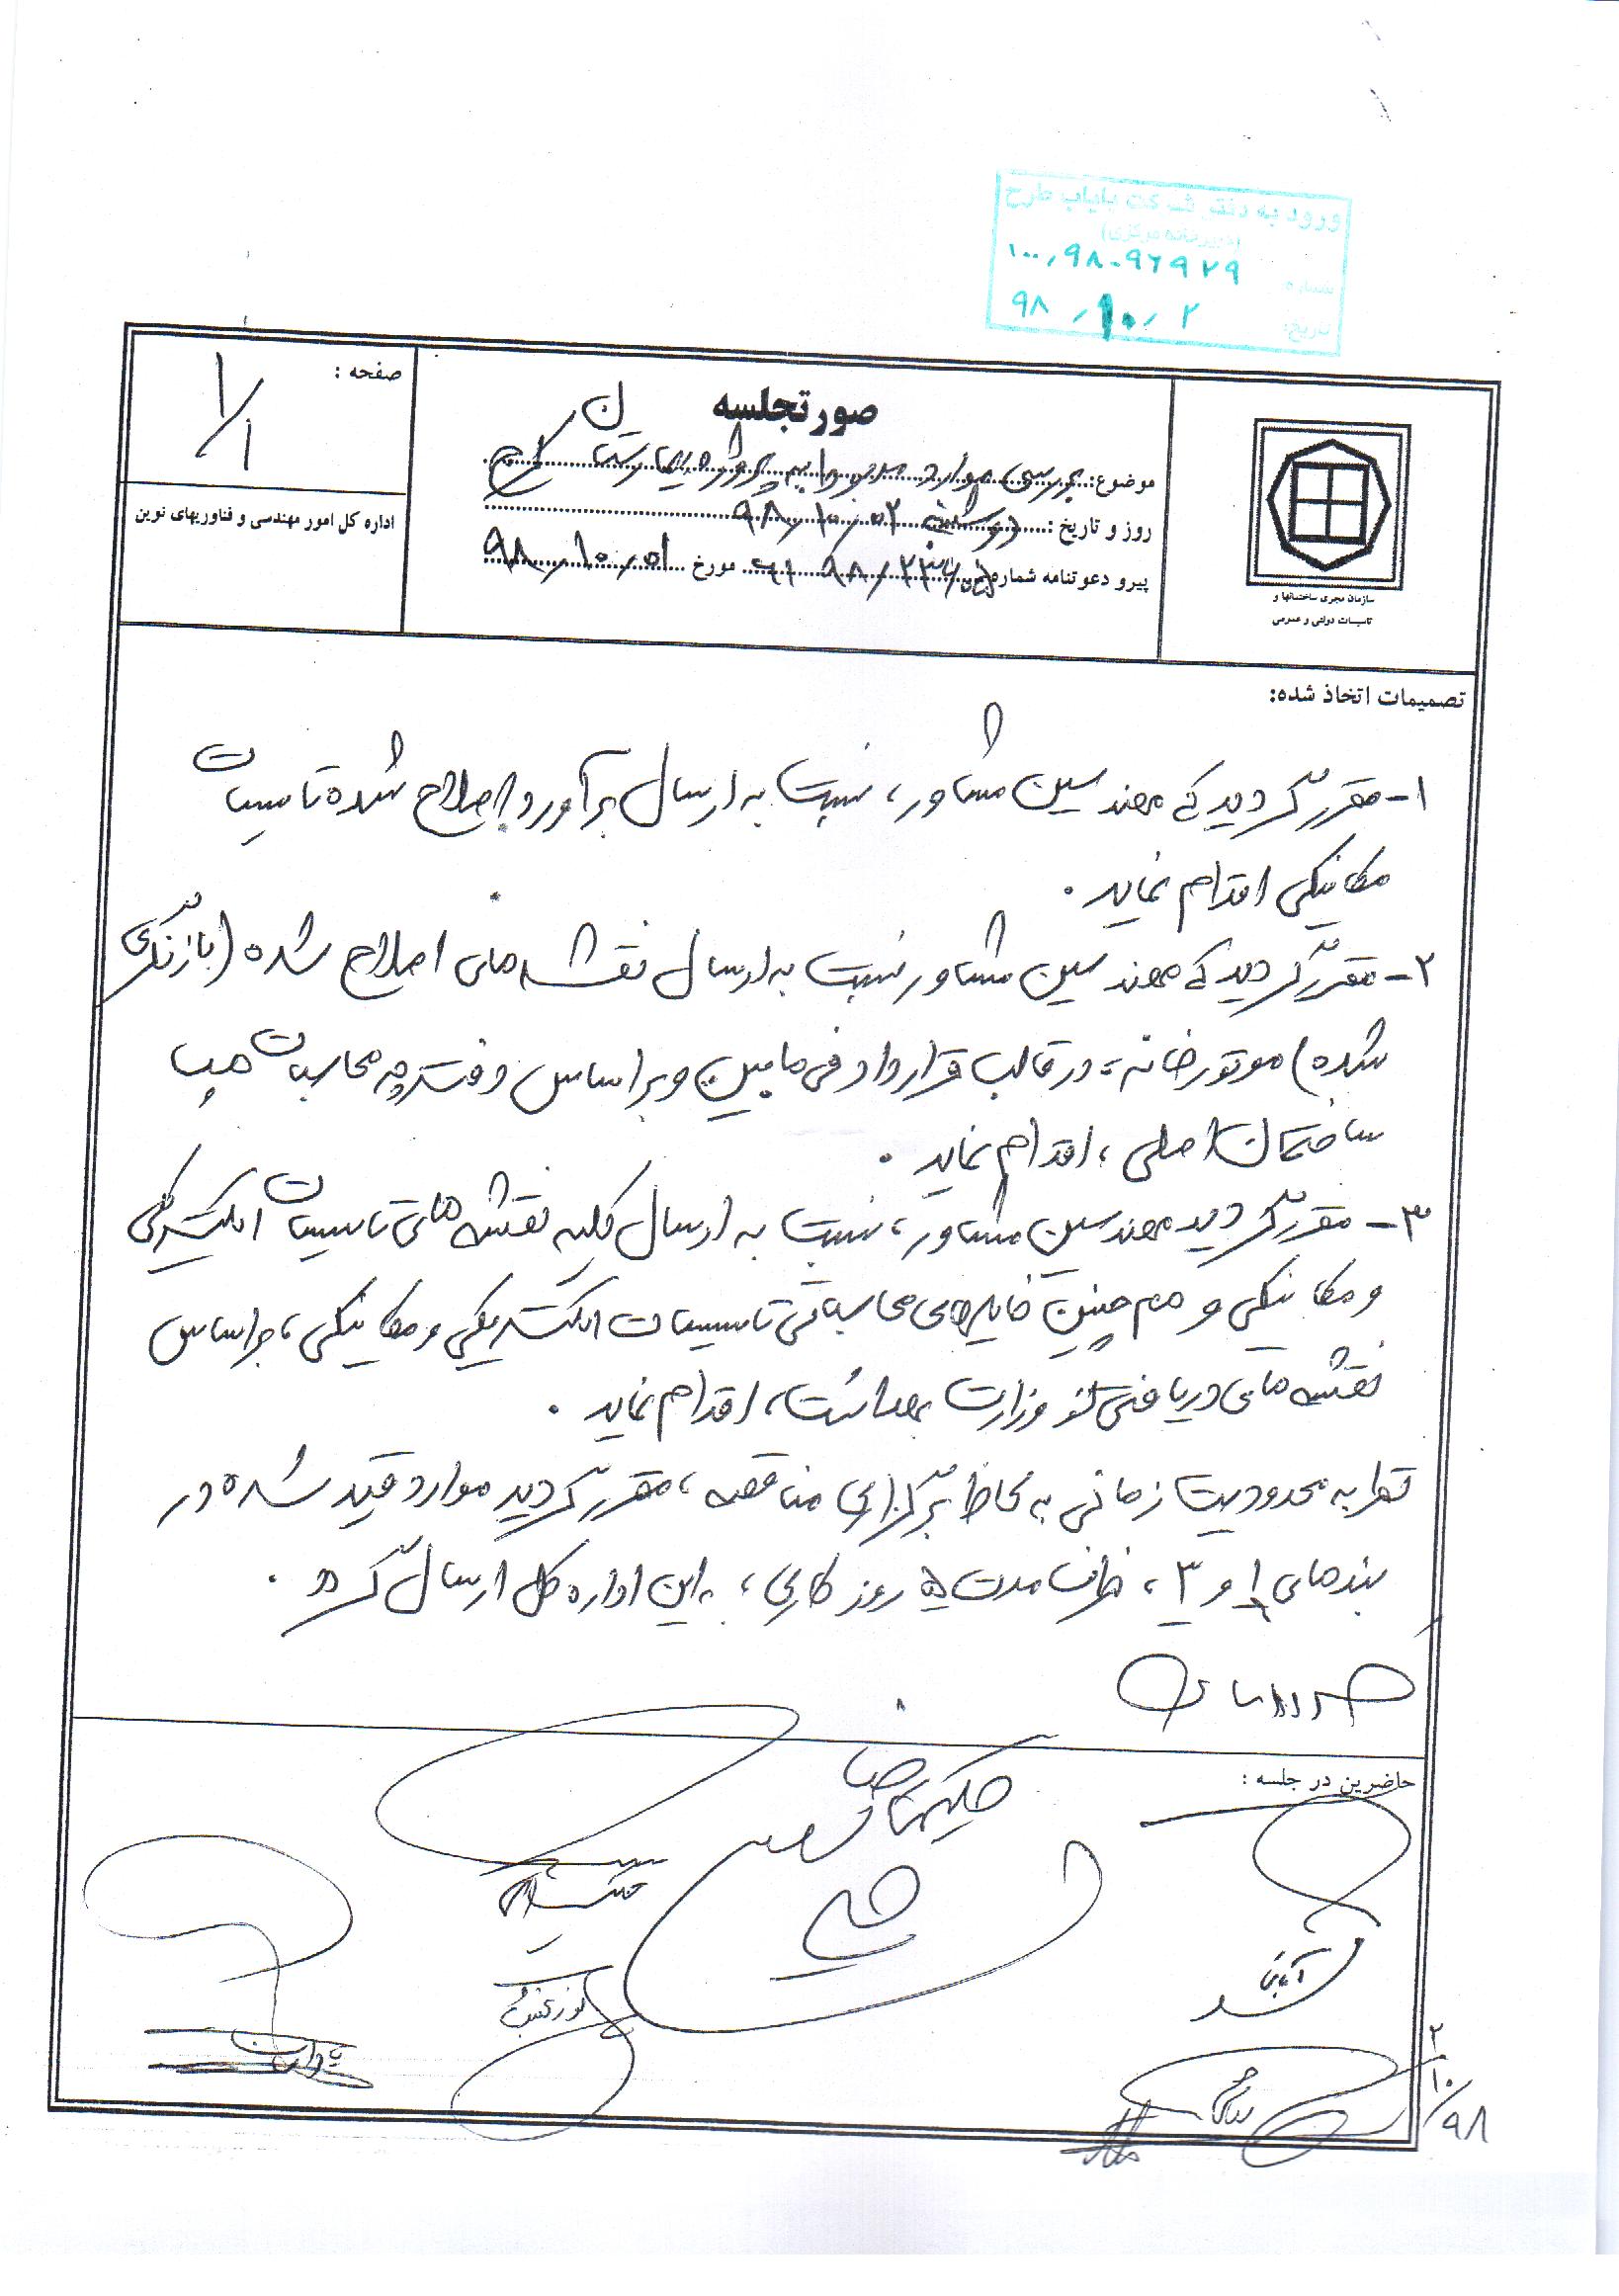 ورود به دفتر شرکت بلیاب طرح
۱۰۰٫۹۸-۹۶۹۲۹
تاریخ: ۹۸٫۱۰٫۲
صورتجلسه
صفحه : ۱/۱
موضوع: بررسی موارد مربوط به پروژه بیمارستان کرج
روز و تاریخ : دوشنبه ۹۸/۱۰/۰۲
پیرو دعوتنامه شماره مورخ ۹۸/۱۰/۰۱
اداره کل امور مهندسی و فناوریهای نوین
سازمان مجری ساختمانها و
تاسیسات دولتی و عمومی
تصمیمات اتخاذ شده:
۱- مقرر گردید که مهندسین مشاور، نسبت به ارسال برآورد اصلاح شده تاسیسات
مکانیکی اقدام نماید.
۲- مقرر گردید که مهندسین مشاور نسبت به ارسال نقشه های اصلاح شده (بازنگری
شده) موتورخانه، در قالب قرارداد فی مابین و بر اساس دفترچه محاسبات
ساختمان اصلی، اقدام نماید.
۳- مقرر گردید مهندسین مشاور، نسبت به ارسال کلیه نقشه های تاسیسات الکتریکی
و مکانیکی و هم چنین فایلهای محاسباتی تاسیسات الکتریکی و مکانیکی، بر اساس
نقشه های دریافتی از وزارت بهداشت، اقدام نماید.
به محدودیت زمانی به لحاظ برگزاری مناقصه، مقرر گردید موارد قید شده در
بندهای ۱ و ۳، ظرف مدت ۵ روز کاری، به این اداره کل ارسال گردد.
حاضرین در جلسه :
۹۸/۱۰/۲